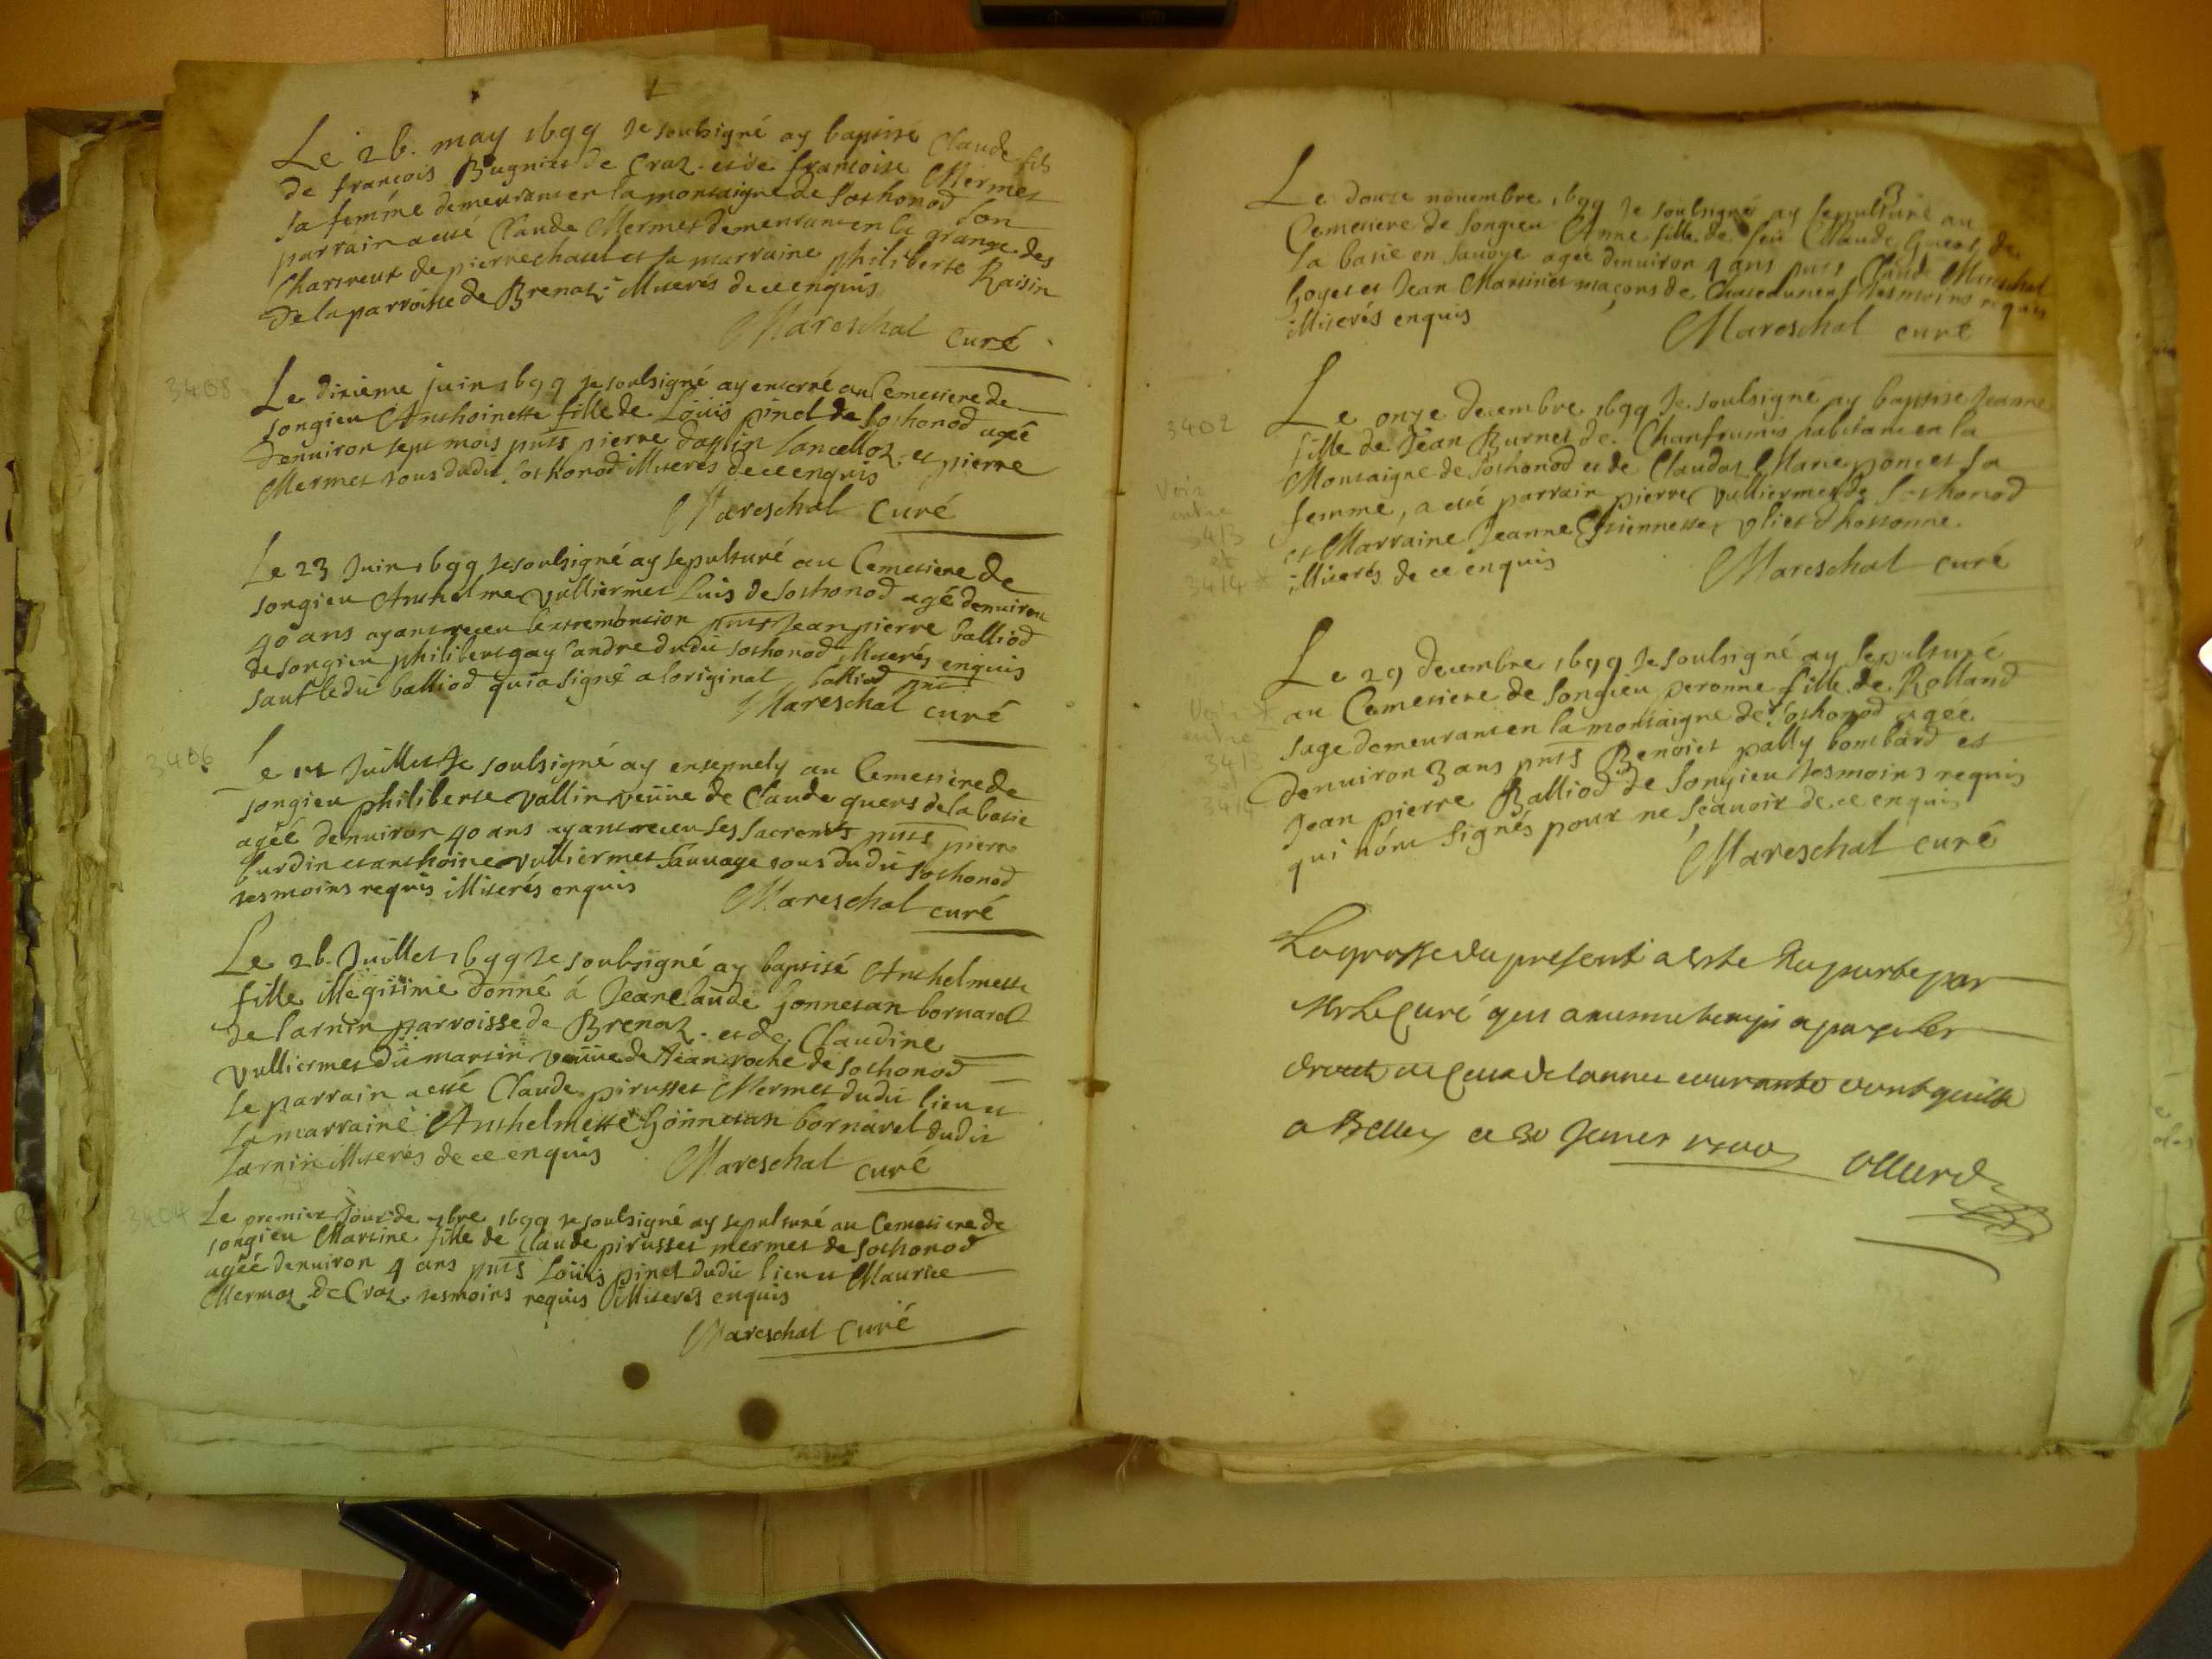 Le 26. may 1699 Je soubsigné ay baptisé Claude fils
de francois Bugniet de Craz. et de francoise Mermet
sa femme demeurant en la montaigne de Sothonod Son
parrain a esté Claude Mermet demeurant en la grange des
Chartreux de pierre chatel et sa marraine philiberte Raisin
de la parroisse de Brenaz illiterés de ce enquis
Mareschal curé
3408
Le dixieme juin 1699 Je soubsigné ay enterré au Cemetiere de
songieu Anthoinette fille de Loüis pinel de Sothonod agée
denuiron sept mois pnts pierre et pierre
Mermet tous dudit Sothonod illiterés de ce enquis
Mareschal Curé
Le 23 Juin 1699 Je soubsigné ay sepulturé au Cemetiere de
songieu Anthelme Vulliermet Luis de Sothonod agé denuiron
40 ans ayant receu lextremontion pnts Jean pierre balliod
de songieu philibert gay landre dudit Sothonod illiterés enquis
sauf ledit balliod qui a signé a loriginal balliod pnt
Mareschal curé
3406
Le Juillet Je soubsigné ay ensepuely au Cemetiere de
songieu philiberte Vallin veüue de Claude quers de la batie
agée denuiron 40 ans ayant receu ses sacremts pnts pierre
burdin et anthoine Vulliermet Sauuage tous dudit Sothonod
tesmoins requis illiterés enquis
Mareschal curé
Le 26. Juillet 1699 Je soubsigné ay baptisé Anthelmette
fille illegitime donné á Jean Claude gonnetan bornarel
de Larnin parroisse de Brenaz. et de Claudine
Vulliermet du martin veüue de Jean roche de Sothonod
Le parrain a esté Claude pirusset Mermet dudit lieu et
La marraine Anthelmette gönnetan bornarel dudit
Larnin illiteres de ce enquis
Mareschal curé
3404
Le premier Jour de 7bre 1699 Je soubsigné ay sepulturé au Cemetiere de
songieu Martine fille de Claude pirusset mermet de Sothonod
agée denuiron 4 ans pnts Loüis pinel dudit lieu et Maurice
Mermoz de Craz. tesmoins requis illiterés enquis
Mareschal Curé
Le douze nouembre 1699 Je soubsigné ay sepulturé au
Cemetiere de Songieu Anne fille de feu Claude de
la batie en sauoye agée denuiron 4 ans pnts Claude Mareschal
goyet et Jean Martinet maçons de Chateauneuf tesmoins requis
illiterés enquis
Mareschal curé
3402
Le onze decembre 1699 Je soubsigné ay baptisé Jeanne
fille de Jean Burnet de habitant en la
Montaigne de Sothonod et de Claudaz Marie poncet sa
femme, a esté parrain pierre Vulliermet de Sothonod
et Marraine Jeanne Estiennette Vliet dhotonne.
illiterés de ce enquis
Mareschal curé
Voir
entre
3413
et
3414 *
Le 29 decembre 1699 Je soubsigné ay sepulturé
au Cemetiere de Songieu peronne fille de Rolland
sage demeurant en la montaigne de Sothonod agée
denuiron 3 ans pnts Benoist pally bombard et
Jean pierre Balliod de Songieu tesmoins requis
qui nónt signés pour ne scauoir de ce enquis
Mareschal curé
Voir *
entre
3413
et
3414
La grosse du present a esté Raportée par
Mr Le Curé qui a mesme temps a payé les
droits de ceux de lannée courante dont quitte
a Belley ce 30 Janvier 1700